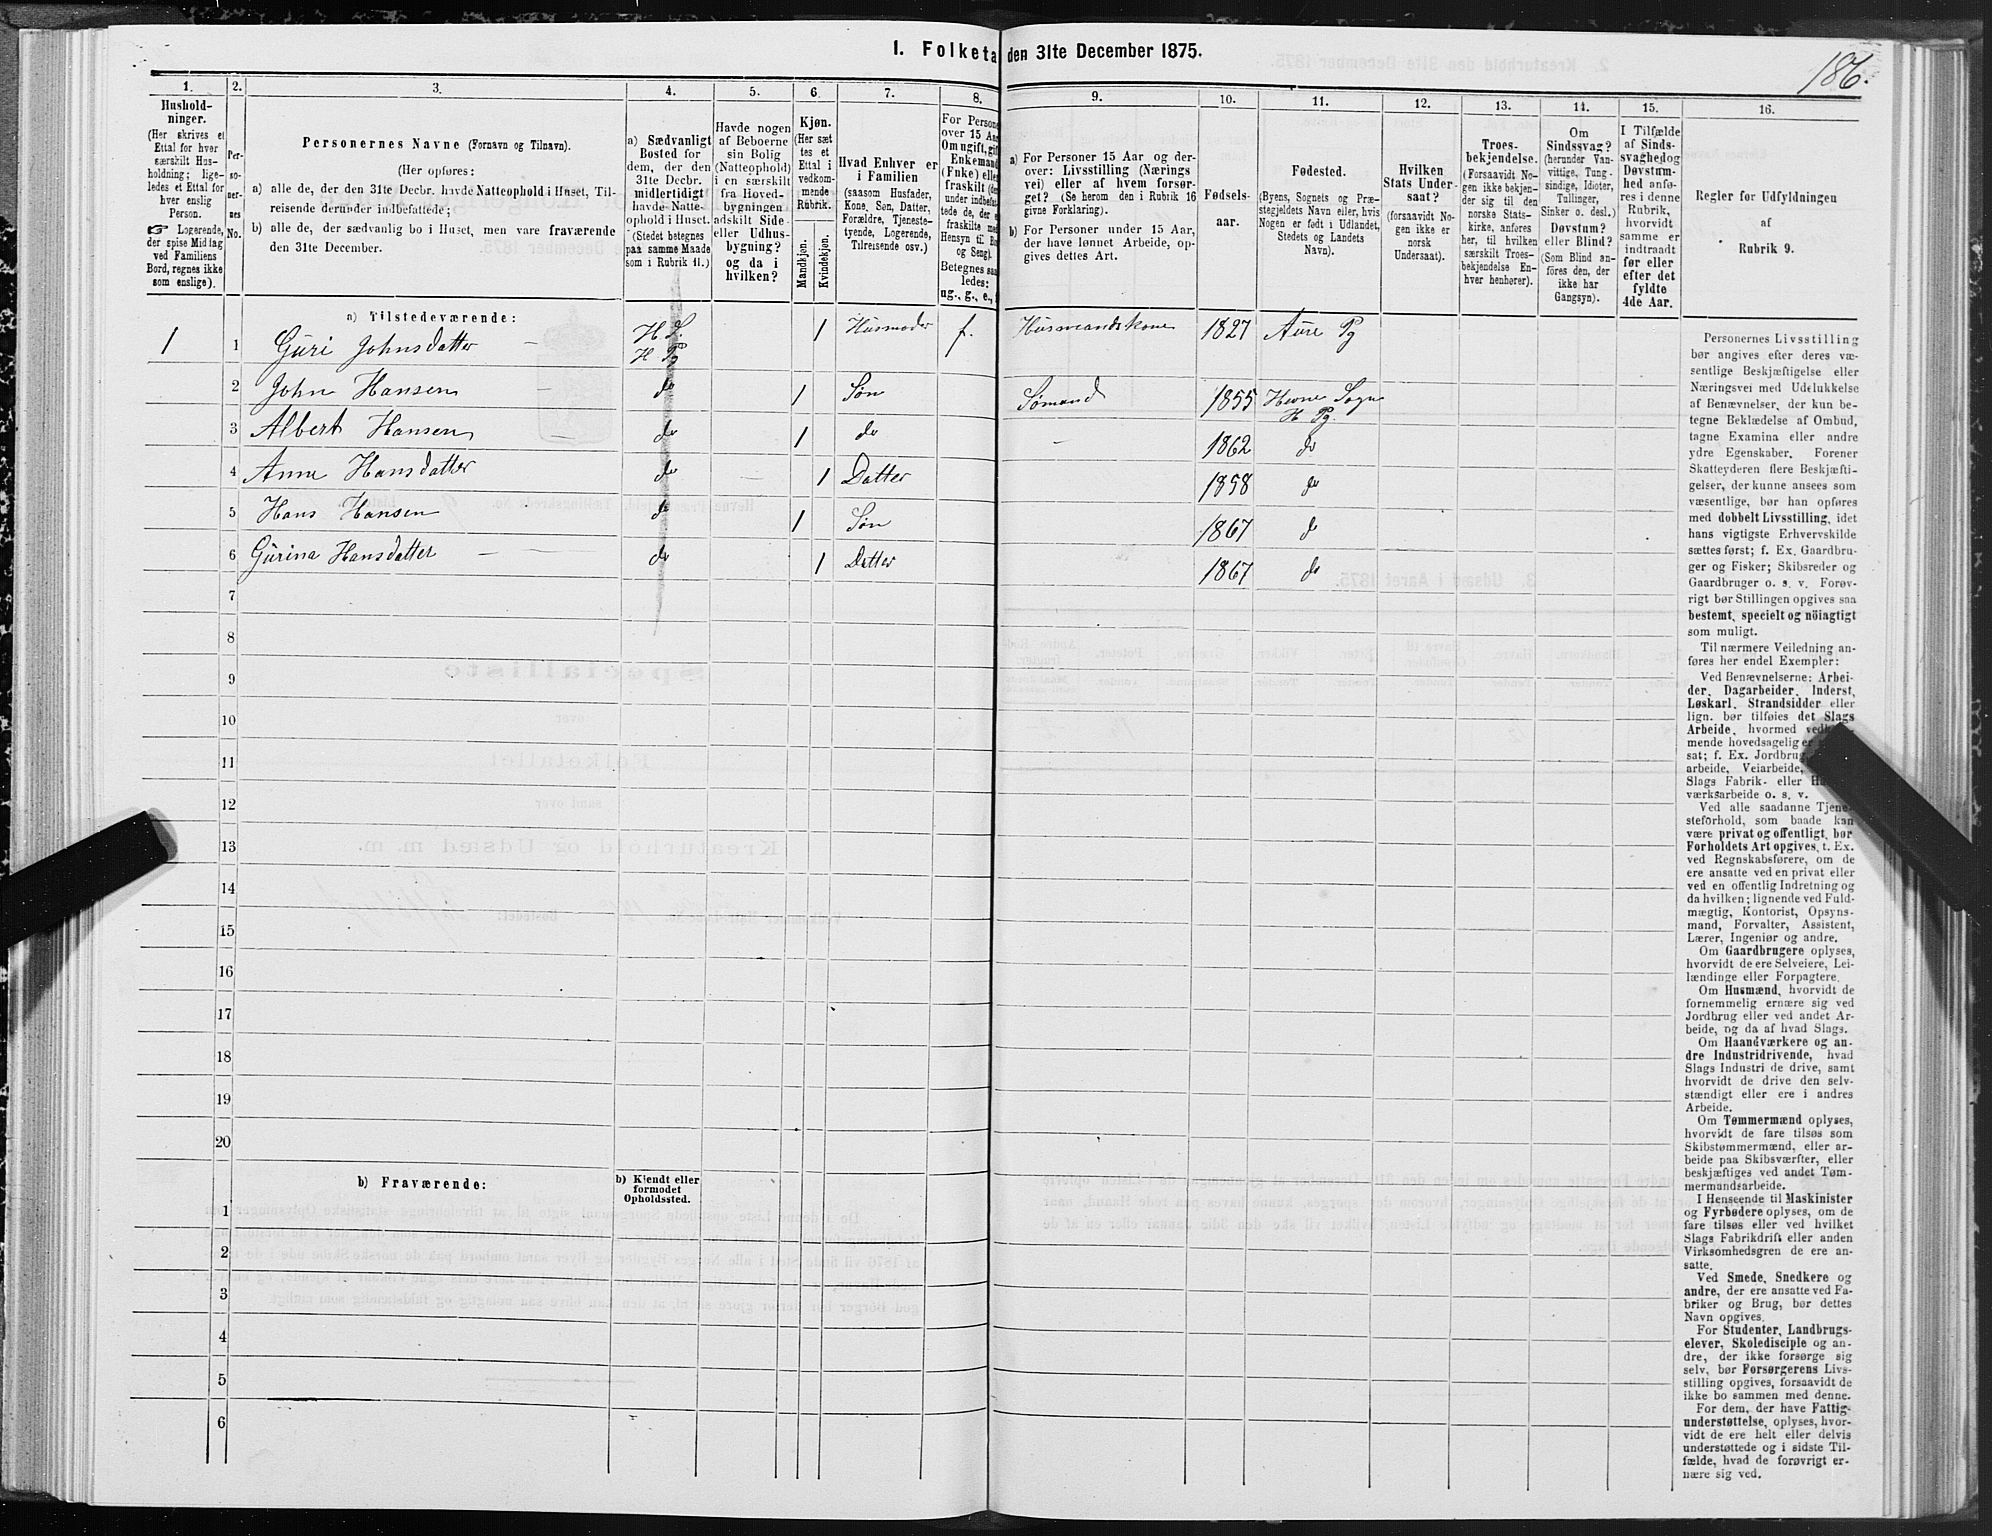 1. Folketa den 31te December 1875.
186.
1.
Hushold-
ninger.
(Her skrives et
Ettal for hver
særskilt Hus-
holdning; lige-
ledes et Ettal for
hver enslig
Person.
☞ Logerende,
der spise Middag
ved Familiens
Bord, regnes ikke
som enslige).
2.
Per-
so-
ner-
nes
No.
3.
Personernes Navne (Fornavn og Tilnavn).
(Her opføres:
a) alle de, der den 31te Decbr. havde Natteophold i Huset, Til-
reisende derunder indbefattede;
b) alle de, der sædvanlig bo i Huset, men vare fraværende
den 31te December.
4.
a) Sædvanligt
Bosted for
dem, der den
31te Decbr.
midlertidigt
havde Natte-
ophold i Huset.
(Stedet betegnes
paa samme Maade
som i Rubrik 11.)
5.
Havde nogen
af Beboerne
sin Bolig
(Natteophold)
i en særskilt
fra Hoved-
bygningen
adskilt Side-
eller Udhus-
bygning?
og da i
hvilken?
6.
Kjøn.
(Her sæt
tes et
Ettal i
vedkom-
mende
Rubrik.
Mandkjøn.
Kvindekjøn.
7.
Hvad Enhver er
i Familien
(saasom Husfader,
Kone, Søn, Datter,
Forældre, Tjeneste-
tyende, Logerende,
Tilreisende osv.)
8.
For Persone
over 15 Aa
Om ugift, gif
Enkemand
(Enke) elle
fraskilt
under indbefat
tede de, der e
fraskilte me
Hensyn til Bo
og Seng).
Betegnes saa
ledes:
ug., g., e.,
9.
a) For Personer 15 Aar og der-
over: Livsstilling (Nærings
vei) eller af hvem forsør-
get? (Se herom den i Rubrik 16
givne Forklaring).
b) For Personer under 15 Aar,
der have lønnet Arbeide, op-
gives dettes Art.
10.
Fødsels-
aar.
11.
Fødested.
(Byens, Sognets og Præ-
stegjeldets Navn eller, hvis
Nogen er født i Udlandet,
Stedets og Landets
Navn).
12.
Hvilken
Stats Under-
saat?
(forsaavidt No-
gen ikke er
norsk
Undersaat).
13.
Troes-
bekjendelse.
(Forsaavidt No-
gen ikke bekjen-
der sig til den
norske Stats-
kirke, anføres
her, til hvilken
særskilt Troes-
bekjendelse En-
hver henhører).
14.
Om
Sindssvag?
(herunder Van-
vittige, Tung-
sindige, Idioter,
Tullinger,
Sinker o. desl.)
Døvstum?
eller Blind?
(Som Blind an-
føres den, der
ikke har
Gangsyn).
15.
I Tilfælde
af Sinds-
svaghed og
Døvstum-
hed anfø-
res i denne
Rubrik,
hvorvidt
samme er
indtraadt
før eller
efter det
fyldte
4de Aar.
16.
Regler for Udfyldningen
af
Rubrik 9.
a) Tilstedeværende:
1 1 Guri Johnsdatter H S. H Pg 1 Husmoder f. Husmandskone 1827 Aure Pg
2 John Hansen do 1 Søn Sømand 1855 Hevne Sogn H Pg.
3 Albert Hansen do 1 do - 1862 do
4 Anne Hansdatter do 1 Datter 1858 do
5 Hans Hansen do 1 Søn 1867 do
6 Gurina Hansdatter do 1 Datter 1867 do
7
8
9
10
11
12
13
14
15
16
17
18
19
20
b) Fraværende:
b) Kjendt eller
formodet
Opholdssted.
1
2
3
4
5
6
Personernes Livsstilling
bør angives efter deres væ-
sentlige Beskjæftigelse eller
Næringsvei med Udelukkelse
af Benævnelser, der kun be-
tegne Beklædelse af Ombud,
tagne Examina eller andre
ydre Egenskaber. Forener
Skatteyderen flere Beskjæfti-
gelser, der kunne ansees som
væsentlige, bør han opføres
med dobbelt Livsstilling, idet
hans vigtigste Erhvervskilde
sættes først; f. Ex. Gaardbru-
ger og Fisker; Skibsreder og
Gaardbruger o. s. v. Forøv-
rigt bør Stillingen opgives saa
bestemt, specielt og nöiagtigt
som muligt.
Til nærmere Veiledning an-
føres her endel Exempler:
Ved Benævnelserne: Arbei-
der, Dagarbeider, Inderst,
Løskarl, Strandsidder eller
lign. bør tilføies det Slags
Arbeide, hvormed ved
mende hovedsagelig er
sat; f. Ex. Jordbrug
arbeide, Veiarbeide,
Slags Fabrik- eller
værksarbeide o. s. v.
Ved alle saadanne Tjene-
steforhold, som baade kan
være privat og offentligt, bør
Forholdets Art opgives, t. Ex.
ved Regnskabsførere, om de
ere ansatte ved en privat eller
ved en offentlig Indretning og
da hvilken; lignende ved Fuld-
mægtig, Kontorist, Opsyns-
mand, Forvalter, Assistent,
Lærer, Ingeniør og andre.
Om Gaardbrugere oplyses,
hvorvidt de ere Selveiere, Lei-
lændinge eller Forpagtere.
Om Husmænd, hvorvidt de
fornemmelig ernære sig ved
Jordbrug eller ved andet Ar-
beide, og da af hvad Slags.
Om Haandværkere og an-
dre Industridrivende, hvad
Slags Industri de drive, samt
hvorvidt de drive den selv-
stændigt eller ere i andres
Arbeide.
Om Tømmermænd oplyses,
hvorvidt de fare tilsøs som
Skibstømmermænd, eller ar-
beide paa Skibsværfter, eller
beskjæftiges ved andet Tøm-
mermandsarbeide.
I Henseende til Maskinister
og Fyrbødere oplyses, om de
fare tilsøs eller ved hvilket
Slags Fabrikdrift eller anden
Virksomhedsgren de ere an-
satte.
Ved Smede, Snedkere og
andre, der ere ansatte ved Fa-
briker og Brug, bør dettes
Navn opgives.
For Studenter, Landbrugs-
elever, Skoledisciple og an-
dre, der ikke forsørge sig
selv, bør Forsørgerens Livs-
stilling opgives, forsaavidt de
ikke bo sammen med denne.
For dem, der have Fattig-
understøttelse, oplyses, hvor-
vidt de ere helt eller delvis
understøttede og i sidste Til-
fælde, hvad de forøvrigt er-
nære sig ved.